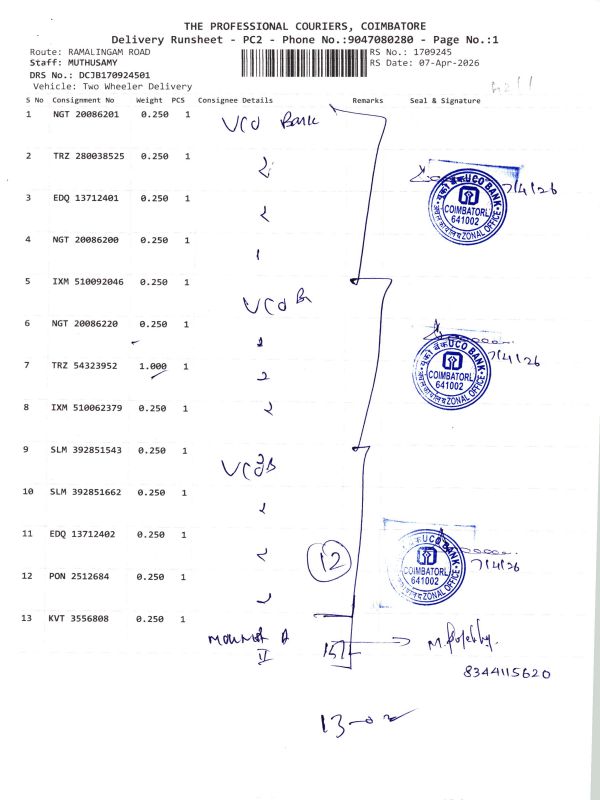 THE PROFESSIONAL COURIERS, COIMBATORE
Delivery Runsheet - PC2 - Phone No.:9047080280 - Page No.:1
Route: RAMALINGAM ROAD
RS No.: 1709245
Staff: MUTHUSAMY
RS Date: 07-Apr-2026
DRS No.: DCJB170924501
Vehicle: Two Wheeler Delivery
S No Consignment No Weight PCS Consignee Details Remarks Seal & Signature
1 NGT 20086201 0.250 1 UCO Bank
2 TRZ 280038525 0.250 1
7/4/26
UCO BANK
COIMBATORE
641002
ZONAL OFFICE
3 EDQ 13712401 0.250 1
4 NGT 20086200 0.250 1
5 IXM 510092046 0.250 1
UCO B
6 NGT 20086220 0.250 1
7/4/26
UCO BANK
COIMBATORE
641002
ZONAL OFFICE
7 TRZ 54323952 1.000 1
8 IXM 510062379 0.250 1
9 SLM 392851543 0.250 1
UCO B
10 SLM 392851662 0.250 1
11 EDQ 13712402 0.250 1
12
7/4/26
UCO BANK
COIMBATORE
641002
ZONAL OFFICE
12 PON 2512684 0.250 1
13 KVT 3556808 0.250 1
8344115620